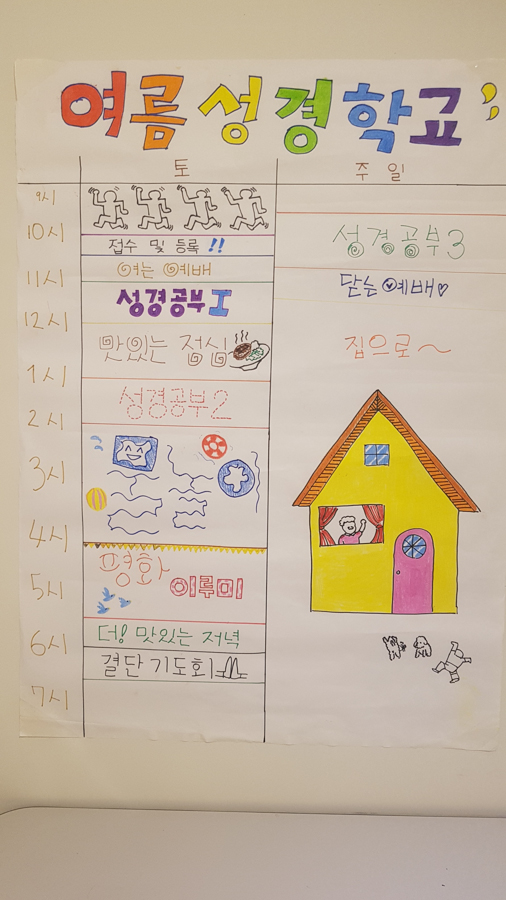 여름 성경 학교
토 주 일
9시
10시
접수 및 등록 !!
여는 예배
11시
성경공부 I
12시
맛있는 점심
1시
성경공부2
2시
물놀이
3시
4시
평화 이루미
5시
6시
더! 맛있는 저녁
결단 기도회
7시
성경공부3
닫는 예배♡
집으로~